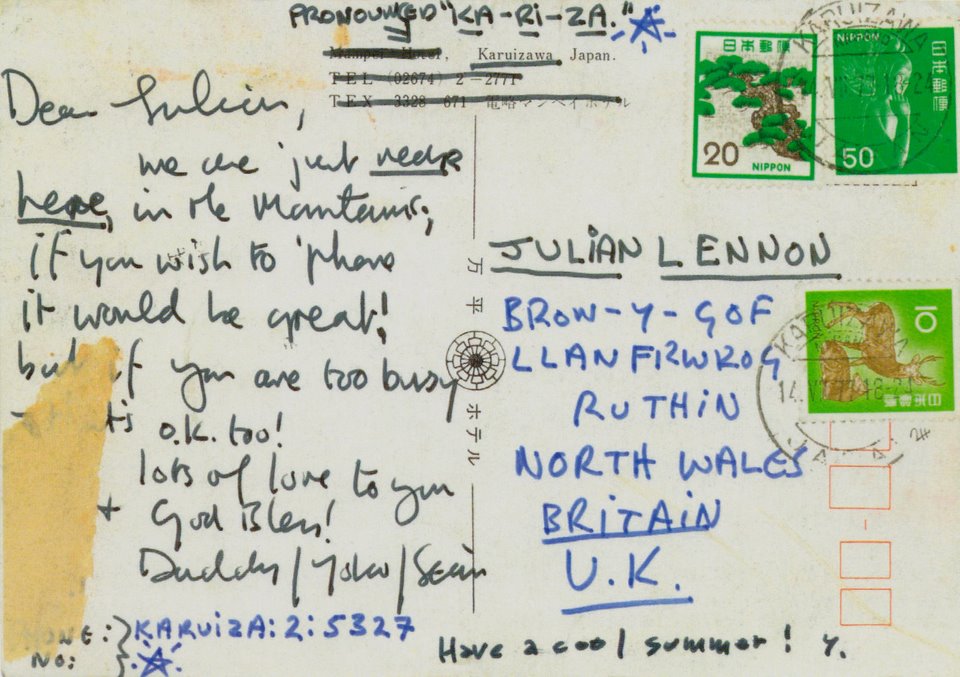 PRONOUNCED "KA-RI-ZA."
Mampei Hotel, Karuizawa, Japan.
TEL (02674) 2-2771
TEX 3328 671 電略マンペイホテル
Dear Julian,
we are just near
here, in the Mountains;
if you wish to 'phone
it would be great!
but if you are too busy
that's o.k. too!
lots of love to you
+ God Bless!
Daddy/Yoko/Sean
PHONE: KARUIZA:2:5327
NO:
Have a cool summer! Y.
万平ホテル
JULIAN LENNON
BROW-Y-GOF
LLANFIRWROG
RUTHIN
NORTH WALES
BRITAIN
U.K.
日本郵便
20
NIPPON
NIPPON
日本郵便
50
KARUIZAWA
10
NIPPON
日本郵便
KARUIZAWA
14.VII.77.18-24
JAPAN